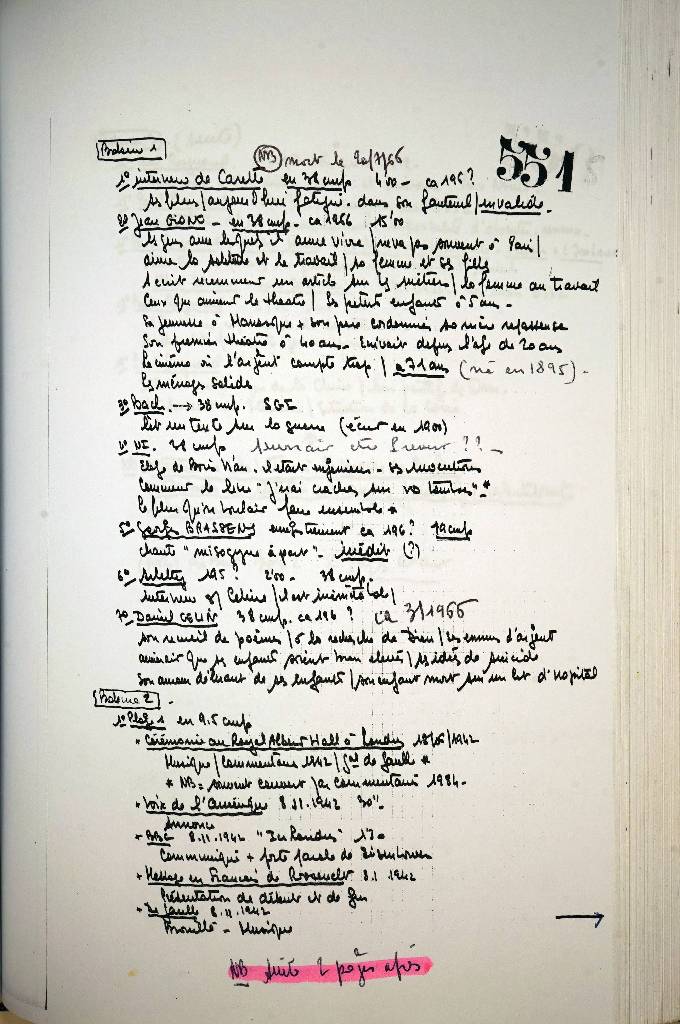 Bobine 1
551
NB mort le 20/7/66
1° interview de Carette en 38 cm/s 4'00 - ca 196?
ses films / aujourd'hui fatigué. dans son fauteuil / invalide.
2° Jean GIONO - en 38 cm/s. ca 1966 15'00
les gens avec lesquels il aime vivre / ne va pas souvent à Paris /
aime la solitude et le travail / sa femme et ses filles
a écrit récemment un article sur les métiers / la femme au travail
Ceux qui aiment le théatre / Ses petits enfants à 5 ans -
Sa jeunesse à Manosque + son père cordonnier sa mère repasseuse
Son premier théatre à 40 ans. Ecrivait depuis l'age de 20 ans
Le cinéma où l'argent compte trop / a 71 ans (né en 1895) -
Les ménages solides
3° Bach. → 38 cm/s. SGE
lit un texte sur la guerre (écrit en 1900)
4° NI. 38 cm/s ??
Eloge de Boris Vian. il était ingénieur - ses inventions
Comment le livre "J'irai cracher sur vos tombes" *
Le film qu'on voulait faire ensemble *
5° Georges BRASSENS enregistrement ca 196? 19 cm/s
chante "misogynie à part" - inédit (?)
6° Arletty 195? 2'00 - 38 cm/s.
interview s/ Céline / il est inimitable /
7° Daniel GELIN 38 cm/s. ca 196? ca 3/1966
son recueil de poèmes / à la recherche de Dieu / ses ennuis d'argent
aimerait que ses enfants soient bien élevés / ses idées de suicide
Son amour délirant de ses enfants / son enfant mort sur un lit d'hopital
Bobine 2
1° Plage 1 en 9.5 cm/s
* Cérémonie au Royal Albert Hall à Londres 18/06/1942
Musique / Commentaires 1942 / Gal de Gaulle *
* NB = souvent couvert par commentaires 1984 -
* Voix de l'Amérique 8.11.1942 30" -
Annonce
+ BBC 8.11.1942 "Ici Londres" 1'30
Communiqué + porte parole de Eisenhower
+ Message en Français de Roosevelt 8.11942
Présentation de début et de fin
+ De Gaulle 8.11.1942
Brouillé - Musique
→
NB Suite 2 pages après